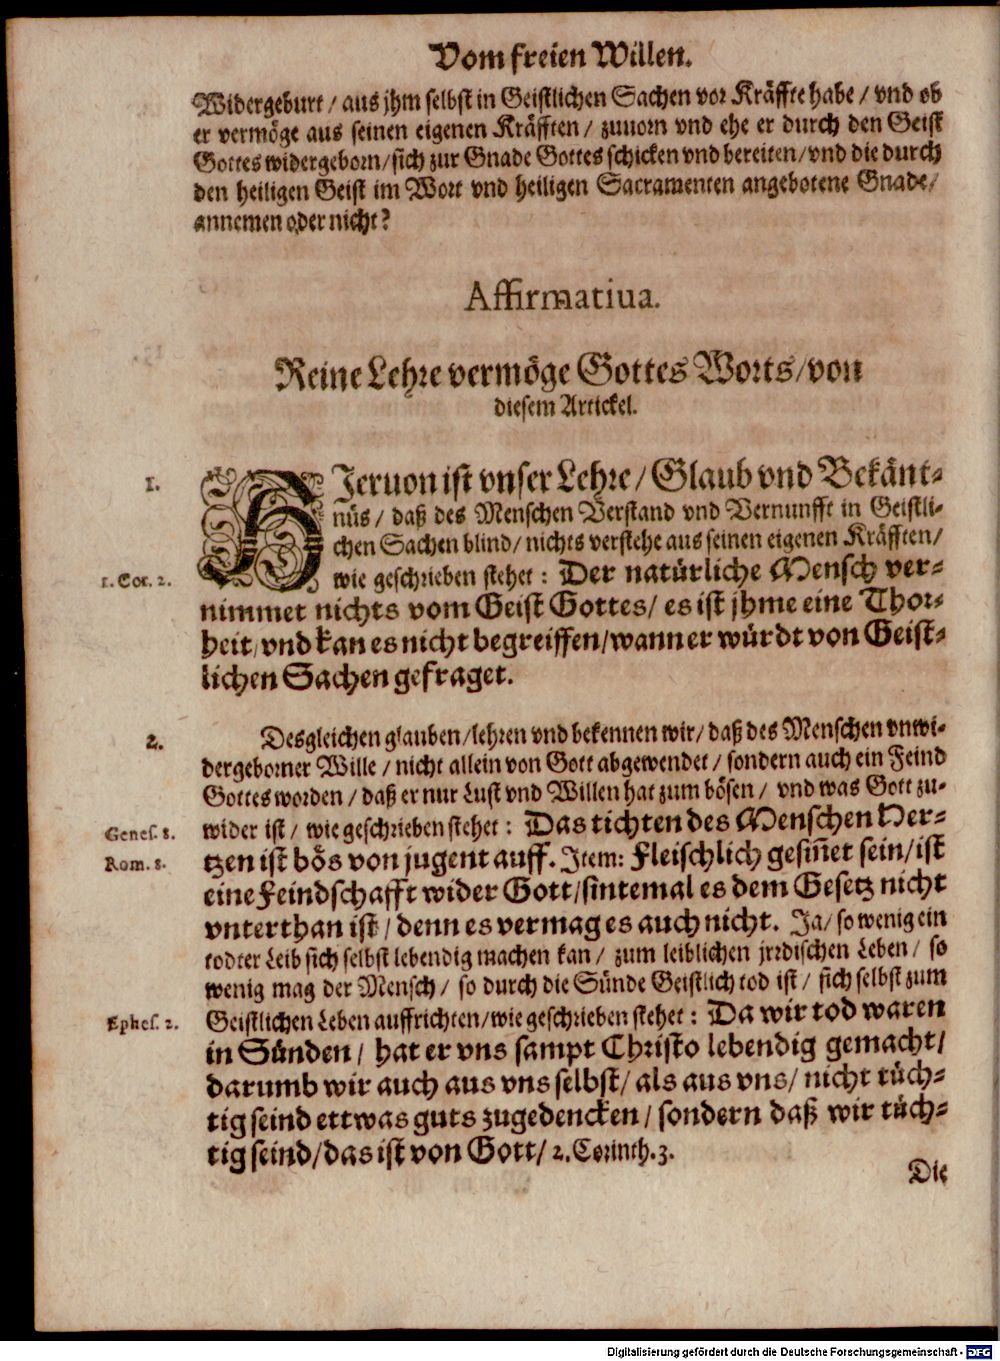 Vom freien Willen.
Widergeburt / aus jhm selbst in Geistlichen Sachen vor Kräffte habe / vnd ob
er vermöge aus seinen eigenen Kräfften / zuuorn vnd ehe er durch den Geist
Gottes widergeborn / sich zur Gnade Gottes schicken vnd bereiten / vnd die durch
den heiligen Geist im Wort vnd heiligen Sacramenten angebotene Gnade /
annemen oder nicht?
Affirmatiua.
Reine Lehre vermöge Gottes Worts / von
diesem Artickel.
1. HJeruon ist vnser Lehre / Glaub vnd Bekänt-
nüs / daß des Menschen Verstand vnd Vernunfft in Geistli-
chen Sachen blind / nichts verstehe aus seinen eigenen Kräfften /
1. Cor. 2. wie geschrieben stehet : Der natürliche Mensch ver-
nimmet nichts vom Geist Gottes / es ist jhme eine Thor-
heit / vnd kan es nicht begreiffen / wann er würdt von Geist-
lichen Sachen gefraget.
2. Desgleichen glauben / lehren vnd bekennen wir / daß des Menschen vnwi-
dergeborner Wille / nicht allein von Gott abgewendet / sondern auch ein Feind
Gottes worden / daß er nur Lust vnd Willen hat zum bösen / vnd was Gott zu-
Genes. 8. wider ist / wie geschrieben stehet : Das tichten des Menschen Her-
Rom. 8. tzen ist bös von jugent auff. Jtem: Fleischlich gesiñet sein / ist
eine Feindschafft wider Gott / sintemal es dem Gesetz nicht
vnterthan ist / denn es vermag es auch nicht. Ja / so wenig ein
todter Leib sich selbst lebendig machen kan / zum leiblichen jrrdischen Leben / so
wenig mag der Mensch / so durch die Sünde Geistlich tod ist / sich selbst zum
Ephes. 2. Geistlichen Leben auffrichten / wie geschrieben stehet : Da wir tod waren
in Sünden / hat er vns sampt Christo lebendig gemacht /
darumb wir auch aus vns selbst / als aus vns / nicht tüch-
tig seind ettwas guts zugedencken / sondern daß wir tüch-
tig seind / das ist von Gott / 2. Corinth. 3.
Die
Digitalisierung gefördert durch die Deutsche Forschungsgemeinschaft - DFG